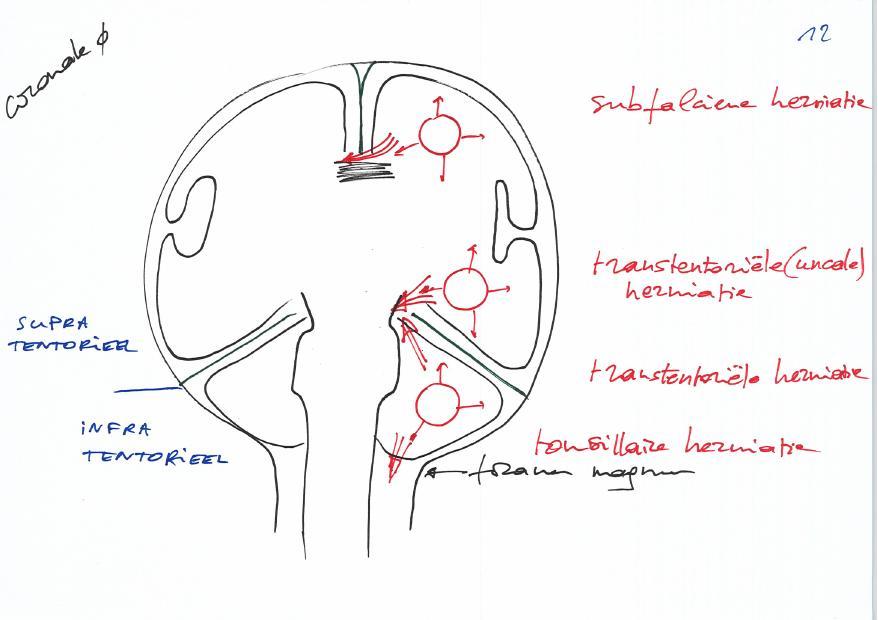 coronale φ
12
subfalciene herniatie
transtentoriële (uncale)
herniatie
SUPRA
TENTORIEEL
transtentoriële herniatie
INFRA
TENTORIEEL
tonsillaire herniatie
foramen magnum